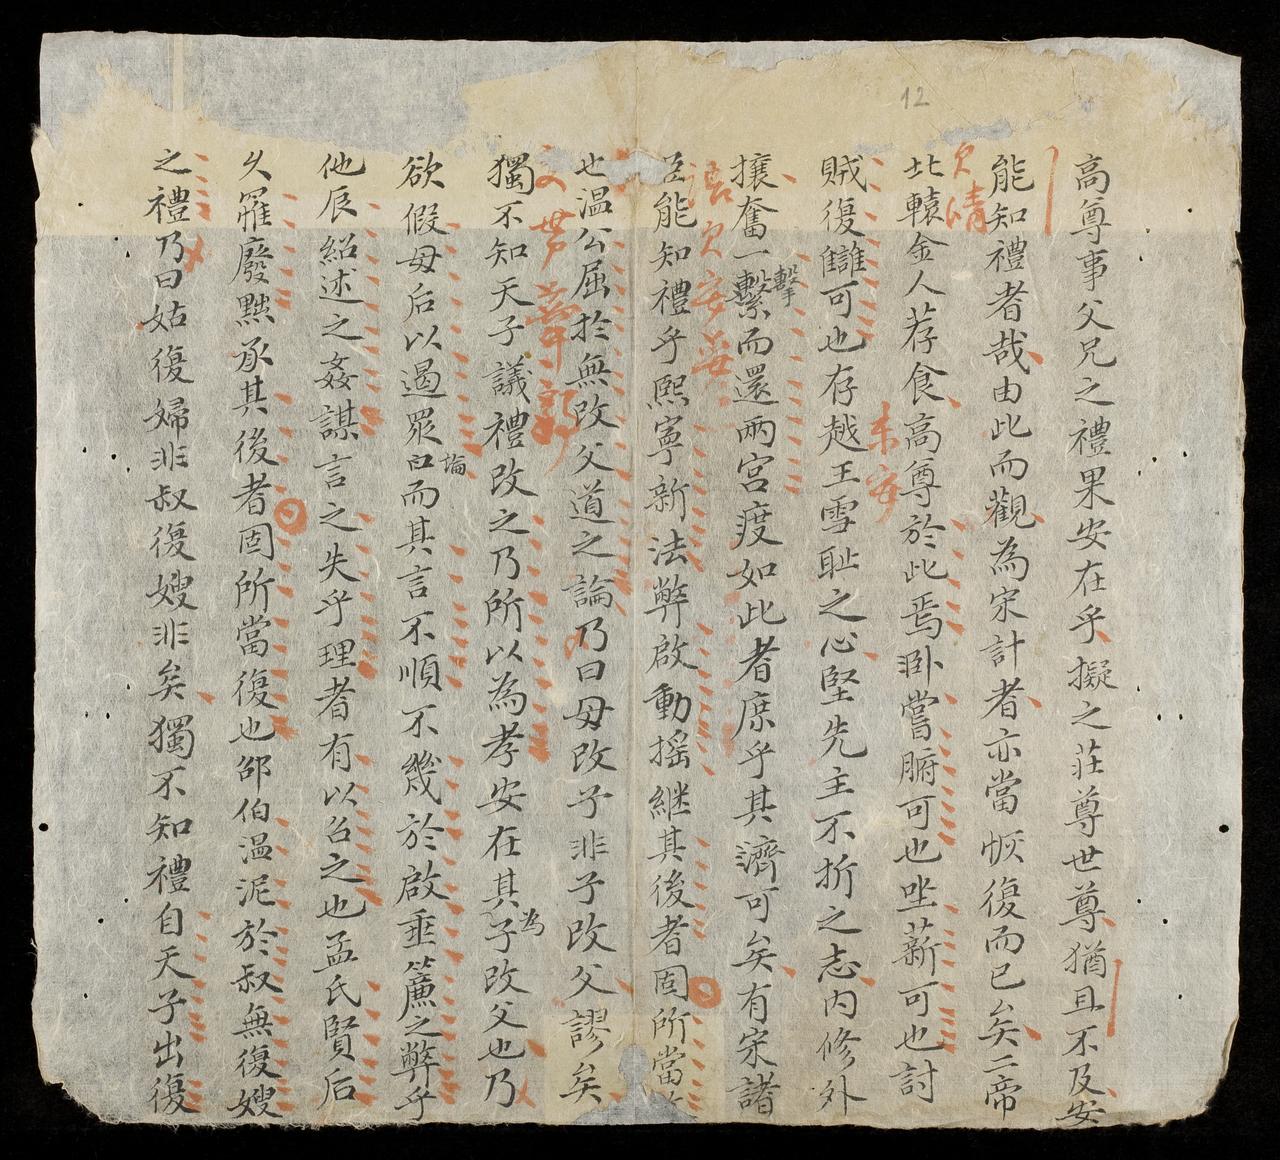 12
高尊事父兄之禮果安在乎擬之莊尊世尊猶且不及安
能知禮者哉由此而觀為宋計者亦當恢復而已矣二帝
欠清
北轅金人荐食高尊於此焉卧嘗腑可也坐薪可也討
未安
賊復讎可也存越王雪耻之心堅先主不折之志内修外
攘奮一繫而還兩宮度如此者庶乎其濟可矣有宋諸
擊
欠安妥
臣能知禮乎熙寧新法弊啟動搖継其後者固所當改
也温公屈於無改父道之論乃曰母改子非子改父謬矣
獨不知天子議禮改之乃所以為孝安在其子改父也乃
為
欲假母后以遏眾口而其言不順不幾於啟垂簾之弊乎
論
他辰紹述之姦謀言之失乎理者有以召之也孟氏賢后
久罹廢黜承其後者固所當復也邵伯温泥於叔無復嫂
之禮乃曰姑復婦非叔復嫂非矣獨不知禮自天子出復